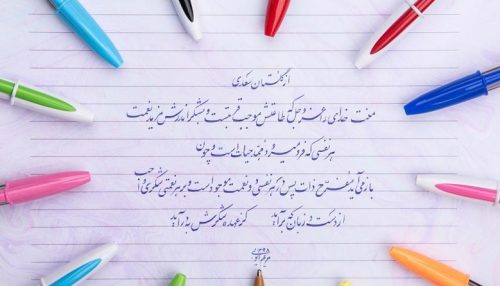 از گلستان سعدی
منت خدای را عز و جل که طاعتش موجب قربتست و بشکر اندرش مزید نعمت
هر نفسی که فرو میرود ممد حیات است و چون
باز می آید مفرح ذات پس در هر نفسی دو نعمت موجود است و بر هر نعمتی شکری واجب
از دست و زبان که برآید کز عهده شکرش به در آید